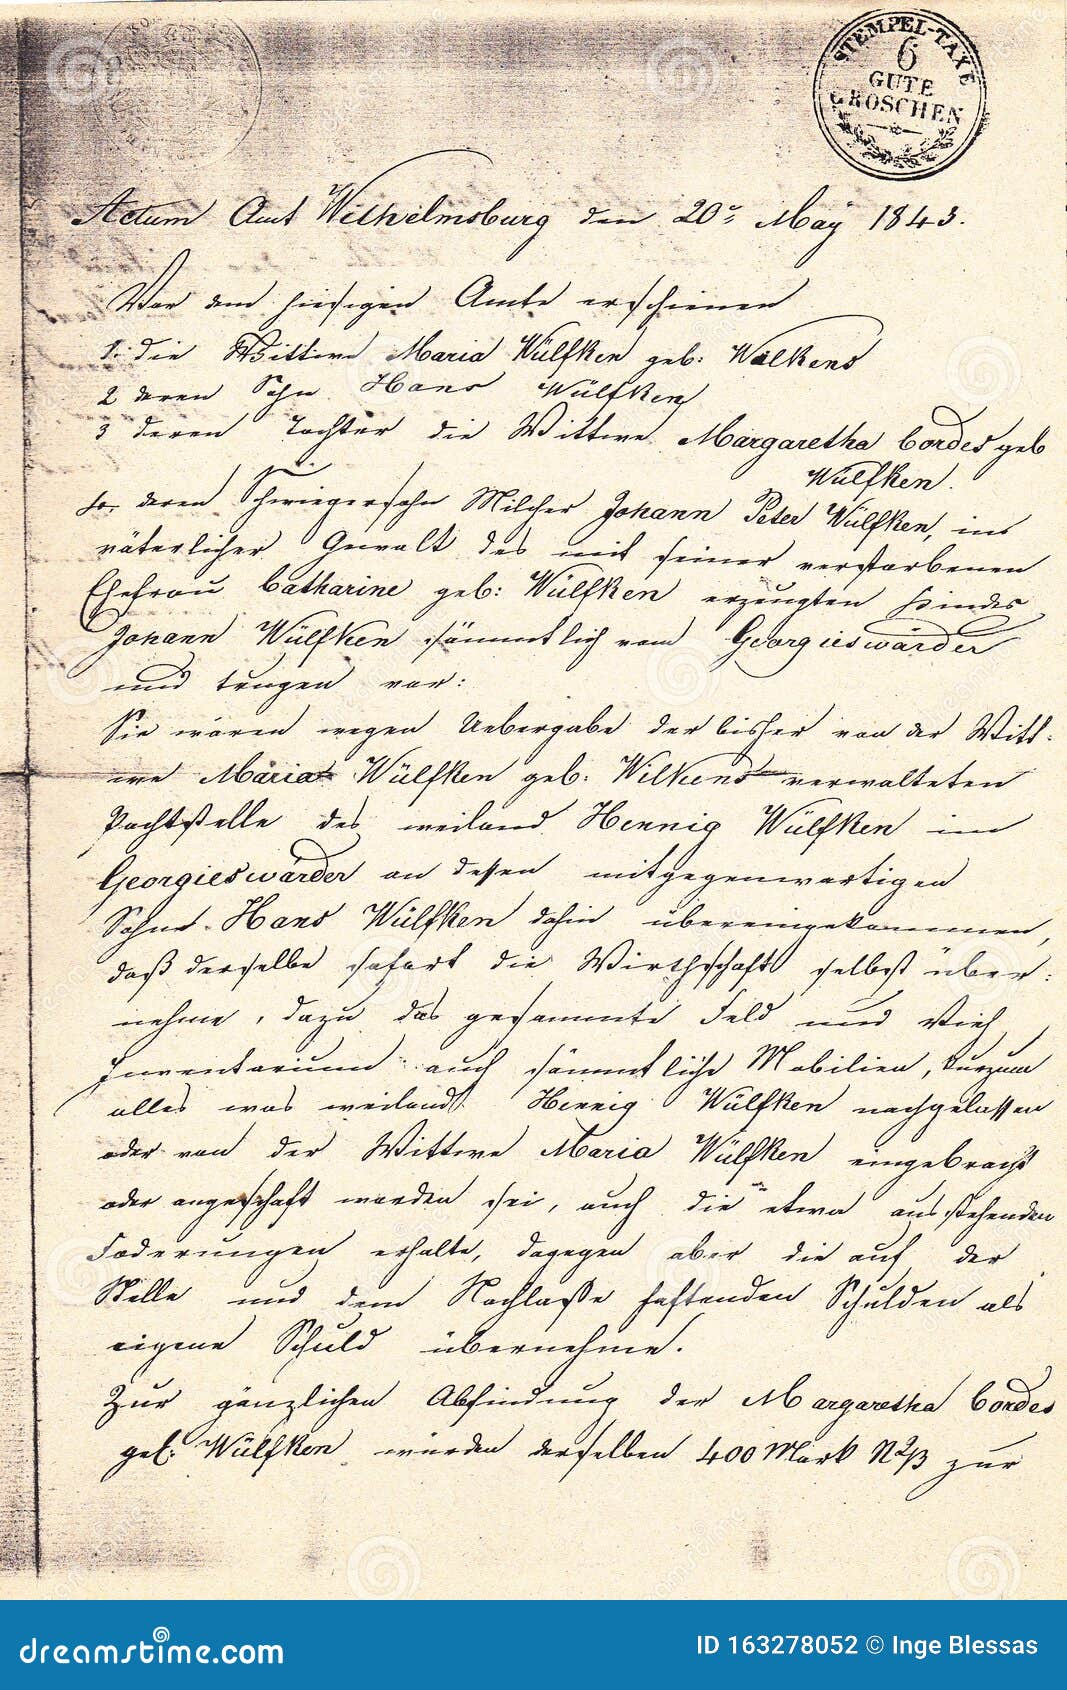 STEMPEL-TAXE
6
GUTE
GROSCHEN
Actum Amt Wilhelmsburg den 20t May 1843.
Vor dem hiesigen Amte erschienen
1. die Wittwe Maria Wülfken geb: Wilkens
2 deren Sohn Hans Wülfken
3 deren Tochter die Wittwe Margaretha Cordes geb
Wülfken.
4. deren Schwiegersohn Milcher Johann Peter Wülfken, in
väterlicher Gewalt des mit seiner verstorbenen
Ehefrau Catharine geb: Wülfken erzeugten Kindes
Johann Wülfken sämmtlich vom Georgieswärder
und trugen vor:
Sie wären wegen Uebergabe der bisher von der Witt-
we Maria Wülfken geb: Wilkens verwalteten
Pachtstelle des weiland Hennig Wülfken im
Georgieswärder an dessen mitgegenwärtigen
Sohne Hans Wülfken dahin übereingekommen,
daß derselbe sofort die Wirthschaft selbst über-
nehme, dazu das gesammte Feld und Vieh
Inventarium auch sämmtliche Mobilien, kurzum
alles was weiland Hennig Wülfken nachgelassen
oder von der Wittwe Maria Wülfken eingebracht
oder angeschaft worden sei, auch die etwa ausstehenden
Foderungen erhalte, dagegen aber die auf der
Stelle und dem Nachlaße haftenden Schulden als
eigene Schuld übernehme.
Zur gänzlichen Abfindung der Margaretha Cordes
geb: Wülfken würden derselben 400 Mark N2/3 zur
dreamstime.com
ID 163278052 © Inge Blessas